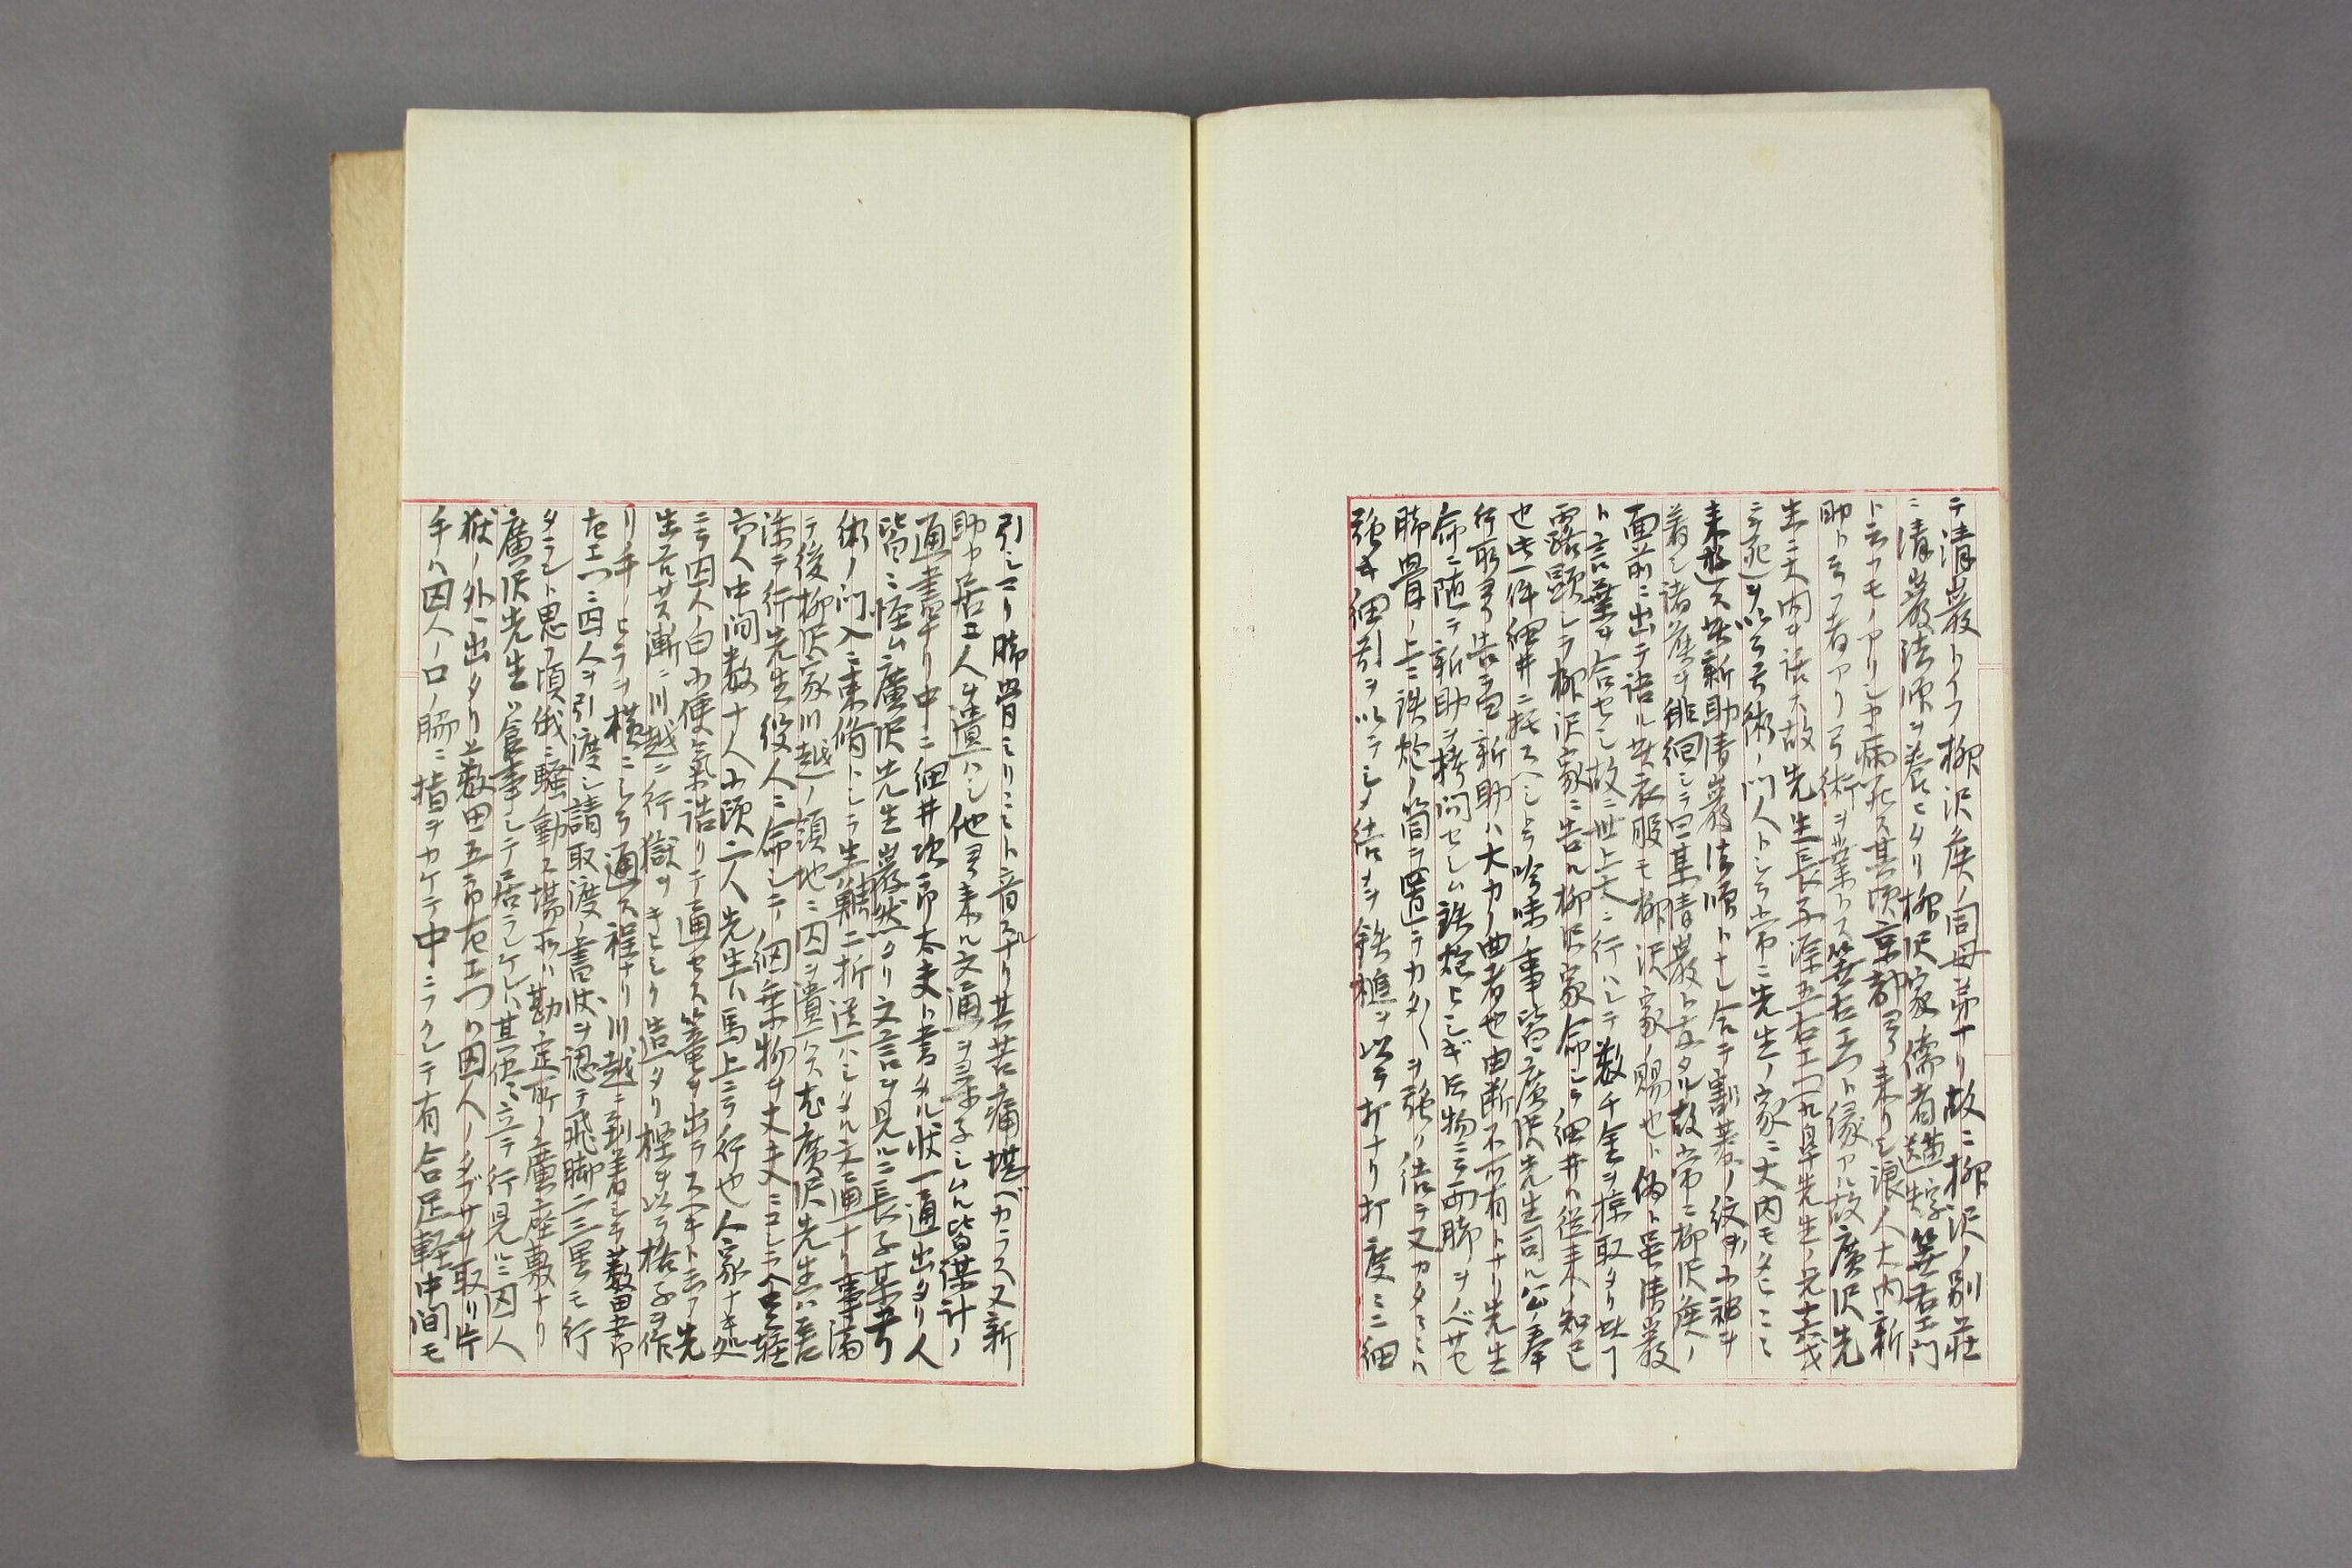 テ清巌トイフ柳沢侯ノ同母弟ナリ故ニ柳沢ノ別荘
ニ清巌法師ヲ養ヒタリ柳沢家儒者 筈右エ門
ト云フモノアリシカ病死ス其頃京都ヨリ来リシ浪人大内新
助ト云フ者アリ弓術ヲ業トス筈右エ門ト縁アル故廣沢先
生ニ大内ヲ託ス故先生長子源五右エ門九皐先生ノ兄十六歳
ニテ死ヲ以テ弓術ノ門人トシテ常ニ先生ノ家ニ大内モタヒヒヒ
来遊ス其新助清巌法師トナレ合テ割菱ノ紋ノ小袖ヲ
着シ諸 ヲ徘徊シテ曰某清巌ト友タル故常ニ柳沢侯ノ
面前ニ出テ語ル其衣服モ柳沢家ノ賜也ト偽ト雖清巌
ト言葉ヲ合セシ故ニ世上大ニ行ハレテ数千金ヲ掠取タリ此
露顕シテ柳沢家ニ告ル柳沢家命シテ細井ハ従来ノ知己
也此一件細井ニ托スヘシトテ吟味ノ事皆廣沢先生司ル公ノ奉
行所ヨリ告テ曰新助ハ大力ノ曲者也由断不可有トナリ先生
命ニ随テ新助ヲ拷問セシム鉄炮ヒシギト云物ニテ両脚ヲノベサセ
脚骨ノ上ニ鉄炮ノ筒ヲ置テカタク ヲ強ク結テ又カタ ハ
強キ細引ヲ以テシメ結ヒヲ鉄槌ヲ以テ打ナリ打度ニ細
引シマリ脚骨ミリミリト音スルナリ其苦痛堪ベカラス又新
助カ居 人ヲ遣ハシ他ヨリ来ル文通ヲ 子シムル皆謀計ノ
通書ナリ中ニ細井次郎太夫ト書タル状一通出タリ人
皆ニ怪ム廣沢先生巌然タリ文言ヲ見ルニ長子某弓
術ノ門入ニ束脩トシテ生鯛二折送ハシタル文通ナリ事済
テ後柳沢家川越ノ領地ニ囚ヲ遣ハス 廣沢先生ハ差
添テ行先生役人ニ命シテ網乗物ヲ丈夫ニコシラヘ足軽
六人中間数十人小頭二人先生ハ馬上ニテ行也人家ナキ処
ニテ囚人ノ曰小便気詰リテ通セス篭ヲ出テスヘキト云フ先
生 サス漸ニ川越ニ行獄ヲキヒシク造タリ樫ヲ以テ格子ヲ作
リ手ノヒラヲ横ニシテ通ス程ナリ川越ニ到着シテ薮田五郎
左エ門ニ囚人ヲ引渡シ請取渡ノ書状ヲ認テ飛脚二三里モ行
タラント思フ頃俄ニ騒動ス場所ハ勘定所ノ廣 座敷ナリ
廣沢先生ハ食事シテ居ラレケルハ其侭ニ立テ行見ルニ囚人
獄ノ外ヘ出タリ薮田五郎左エ門ハ囚人ノタブサヲ取リ片
手ハ囚人ノ口ノ脇ニ指ヲカケテ中ニ テ有合足軽中間モ